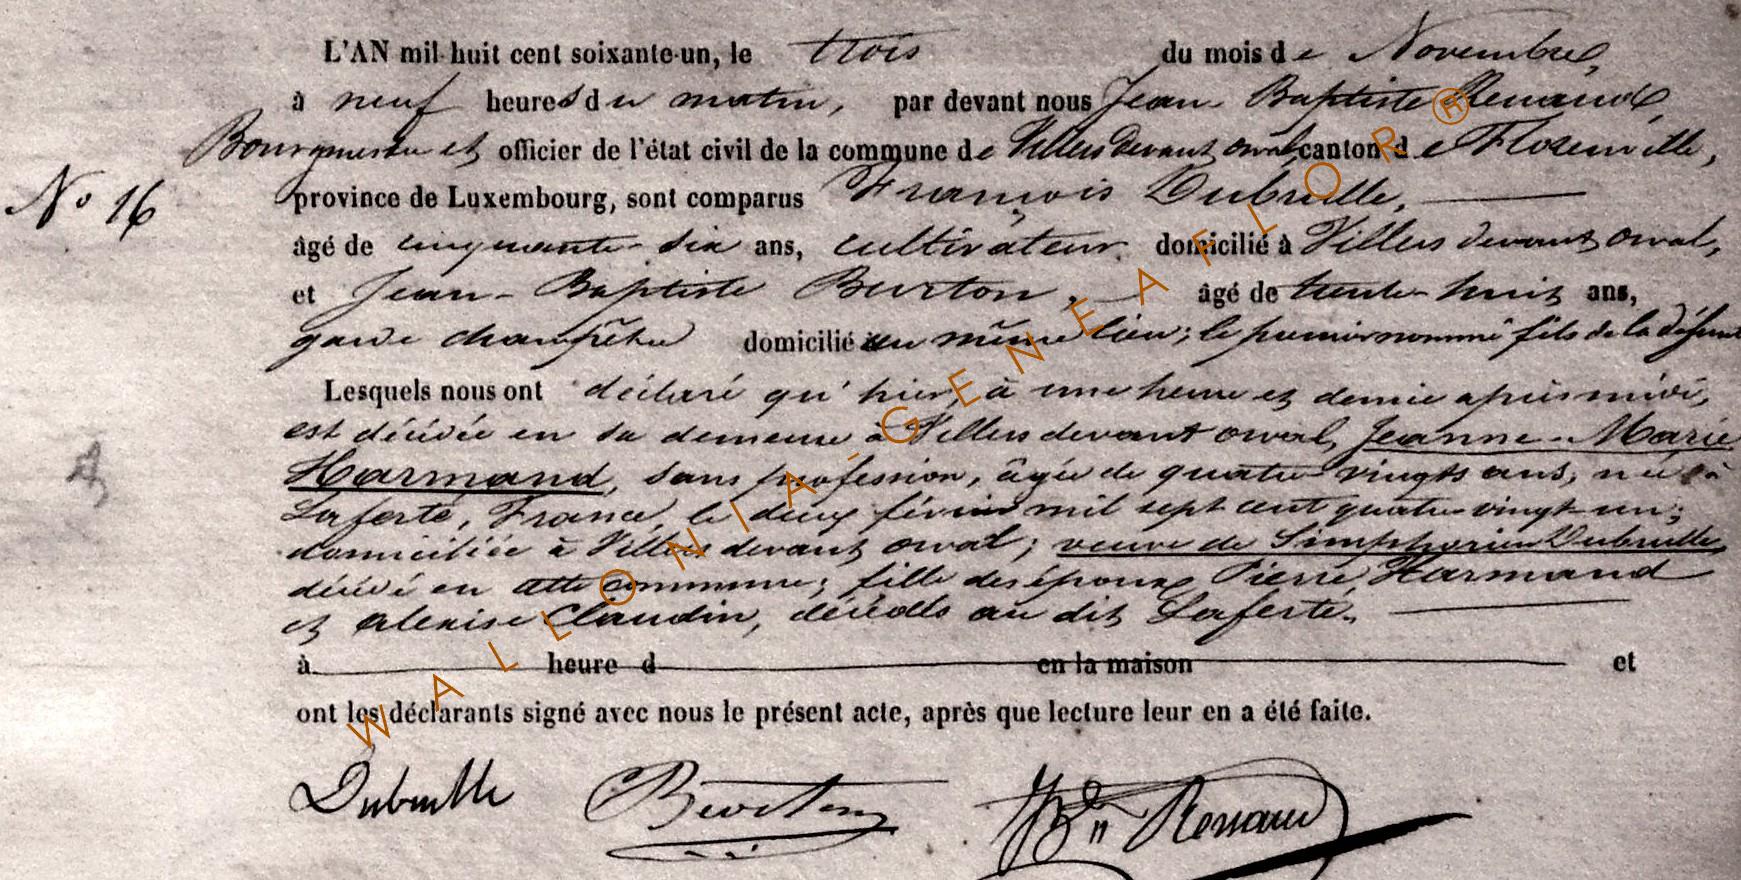 L'AN mil huit cent soixante-un, le trois du mois de Novembre,
à neuf heures du matin, par devant nous Jean Baptiste Renauld,
Bourgmestre et officier de l'état civil de la commune de Villers devant orval canton de Florenville,
N° 16
province de Luxembourg, sont comparus François Dubrulle,
âgé de cinquante-six ans, cultivateur domicilié à Villers devant orval,
et Jean-Baptiste Burton, âgé de trente-huit ans,
garde champêtre domicilié au même lieu; le premier nommé fils de la défunte
Lesquels nous ont déclaré qu'hier, à une heure et demie après midi,
est décédée en sa demeure à Villers devant orval, Jeanne-Marie
Harmand, sans profession, âgée de quatre-vingts ans, née à
Laferté, France, le deux février mil sept cent quatre-vingt-un;
domiciliée à Villers devant orval; veuve de Simphorien Dubrulle,
décédé en cette commune; fille des époux Pierre Harmand
et alexise Claudin, décédés au dit Laferté.
à heure d en la maison et
ont les déclarants signé avec nous le présent acte, après que lecture leur en a été faite.
Dubrulle Burton JBte Renauld
WALLONIA-GENEAFLOR®